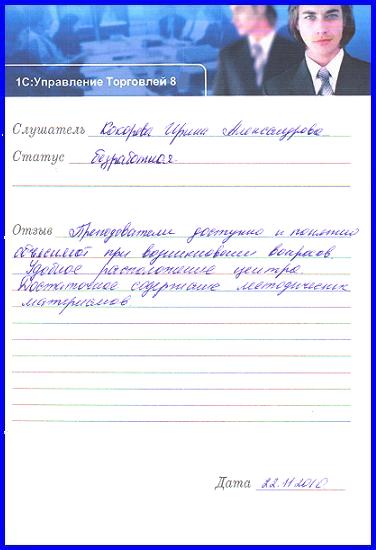 1С:Управление Торговлей 8
Слушатель Кокорева Ирина Александровна
Статус безработная
Отзыв Преподователи доступно и понятно
объясняют при возникновении вопросов.
Удобное расположение центра.
Достаточное содержание методических
материалов
Дата 22.11.2010